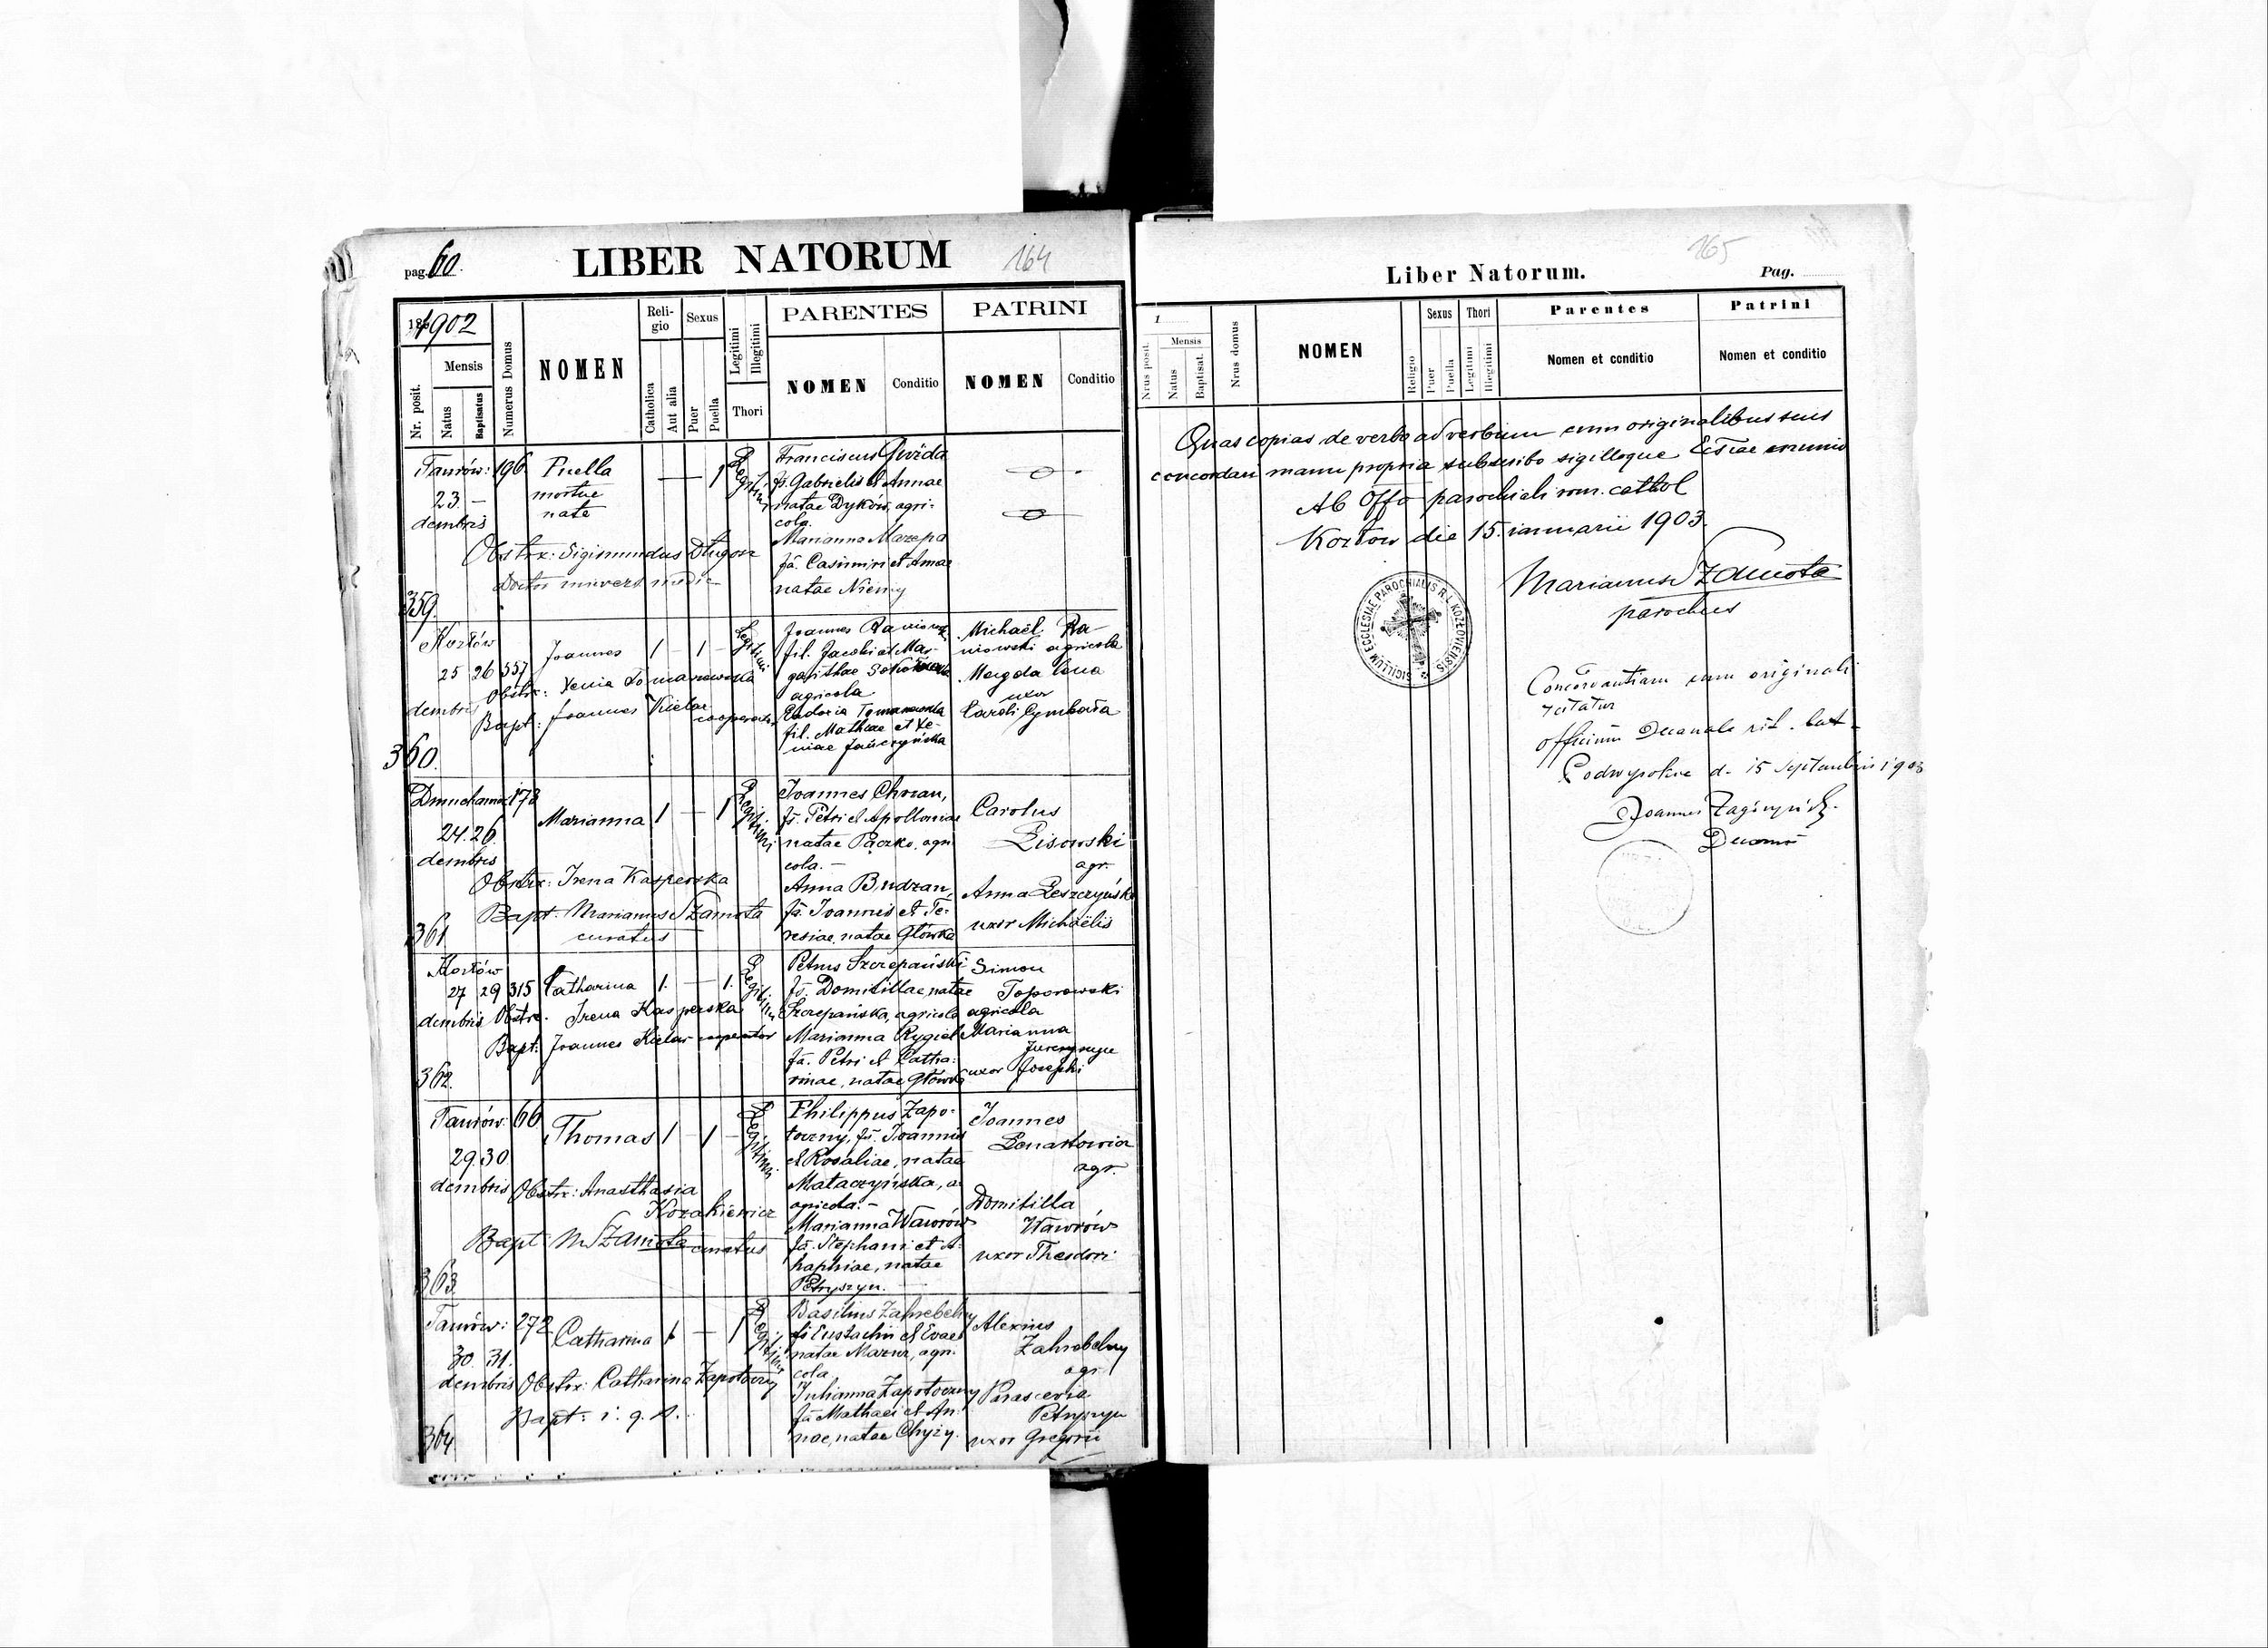 pag. 60.
LIBER NATORUM
164
1902
Nr. posit.
Mensis
Natus
Baptisatus
Numerus Domus
NOMEN
Religio
Catholica
Aut alia
Sexus
Puer
Puella
Legitimi
Illegitimi
Thori
PARENTES
NOMEN
Conditio
PATRINI
NOMEN
Conditio
Taurów: 196
23 —
dembris
Puella
mortue
nata
— 1
Legitimi
Franciscus Gwizda
fs. Gabrielis et Annae
natae Dyków, agri-
cola.
Marianna Mazepa
fa. Casimiri et Annae
natae Niemy
Obstrx: Sigismundus Długosz
Doctor univers medic
359
Kozłów
25 26 557
dembris
Joannes
1 — 1 —
Legitimi
Joannes Raniowski
fil. Jacobi et Mar-
garithae
agricola
Eudoxia Tomaszewska
fil. Mathiae et Xe-
niae Jańczyńska
Michaël Ra-
niowski agricola
Magdalena
uxor
Caroli Cymbała
Obstr: Xenia Tomaszewska
Bapt: Joannes Kielar
cooperator
360.
Dmuchawiec 173
24. 26
dembris
Marianna
1 — 1
Legitimi
Joannes Chrzan,
fs. Petri et Apolloniae
natae Paczko, agri
cola. —
Anna Budzan,
fa. Joannis et Te-
resiae, natae Główka
Carolus
Lisowski
agr.
Anna Leszczyńska
uxor Michaëlis
Obstrx: Irena Kasperska
Bapt: Marianus Szamota
curatus
361
Kozłów
27 29 315
dembris
Catharina
1. — 1.
Legitimi
Petrus Szczepański
fs. Domitillae, natae
Szczepańska, agricola
Marianna Rygiel
fa. Petri et Catha-
rinae, natae Główka
Simon
Toporowski
agricola
Marianna
uxor Josephi
Obstr. Irena Kasperska
Bapt: Joannes Kielar cooperator
362.
Taurów: 66
29. 30
dembris
Thomas
1 — 1 —
Legitimi
Philippus Zapo-
toczny, fs. Joannis
et Rosaliae, natae
Mataczyńska, a-
gricola. —
Marianna Wawrów
fa. Stephani et A-
haphiae, natae
Petryszyn.
Joannes
Lenartowicz
agr.
Domitilla
Wawrów
uxor Theodori
Obstrx: Anasthasia
Kozakiewicz
Bapt: M Szamota curatus
363.
Taurów: 272
30. 31.
dembris
Catharina
1 — 1
Legitimi
Basilius Zahrebelny
fs Eustachii et Evae
natae Mazur, agri-
cola
Julianna Zapotoczny
fa Mathaei et An-
nae, natae Chyży.
Alexius
Zahrebelny
agr.
Parascevia
Petryszyn
uxor Gregorii
Obstrx: Catharina Zapotoczny
Bapt: i. q. s.
364
165
Liber Natorum.
Pag.
1
Nrus posit.
Mensis
Natus
Baptisat.
Nrus domus
NOMEN
Religio
Sexus
Puer
Puella
Thori
Legitimi
Illegitimi
Parentes
Nomen et conditio
Patrini
Nomen et conditio
Quas copias de verbo ad verbum cum originalibus suis
concordari manu propria subscribo sigilloque Ecclae munio
Ab Offo parochiali rom. cathol
Kozłów die 15. ianuarii 1903.
Marianus Szamota
parochus
SIGILLUM ECCLESIAE PAROCHIALIS R. L. KOZŁOVIENSIS
Concordantiam cum originali
testatur
Officium Decanale rit. lat.
Podwysokie d. 15 Septembris 1903
Joannes
Decanus